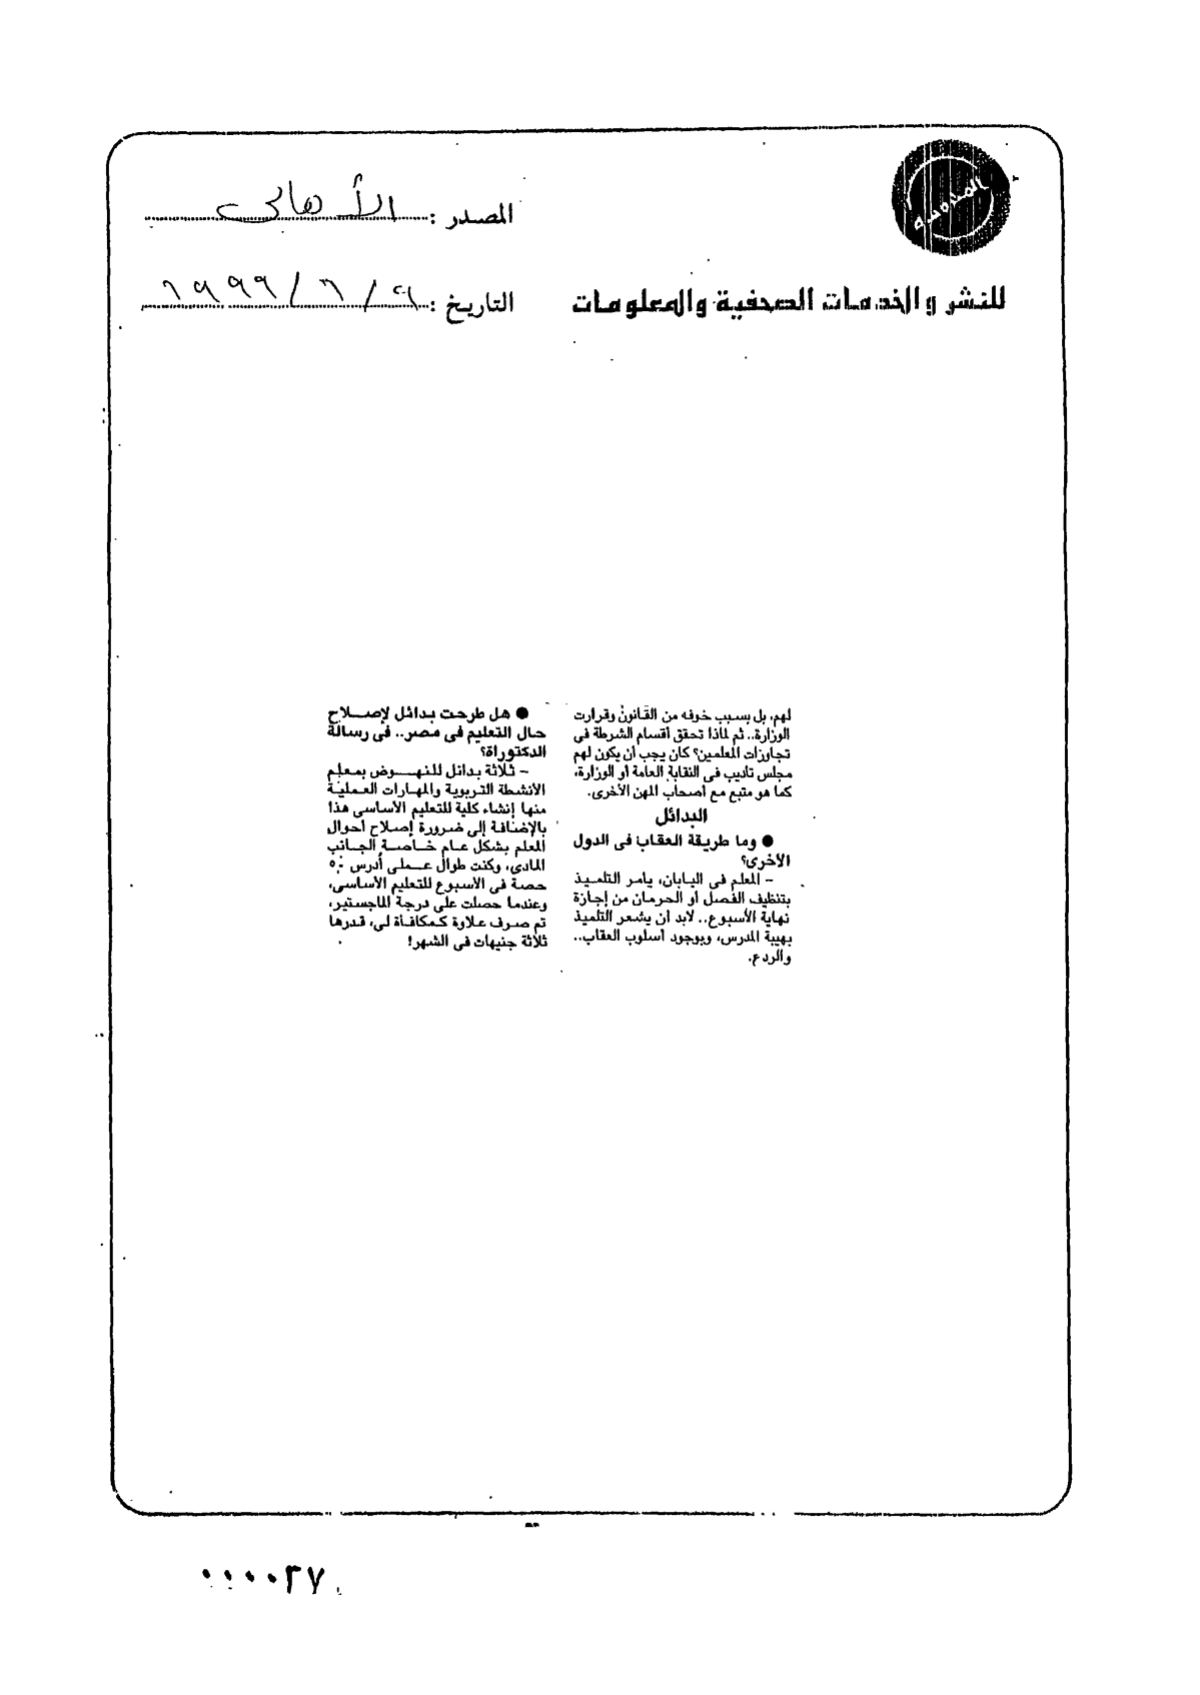 المصدر : الأهالى
للنشر والخدمات الصحفية والمعلومات
التاريخ : ٩ / ٦ / ١٩٩٩
لهم، بل بسبب خوفه من القانون وقرارت
الوزارة.. ثم لماذا تحقق أقسام الشرطة فى
تجاوزات المعلمين؟ كان يجب أن يكون لهم
مجلس تأديب فى النقابة العامة أو الوزارة،
كما هو متبع مع أصحاب المهن الأخرى.
البدائل
● وما طريقة العقاب فى الدول
الأخرى؟
– المعلم فى اليابان، يأمر التلميذ
بتنظيف الفصل أو الحرمان من إجازة
نهاية الأسبوع.. لابد أن يشعر التلميذ
بهيبة المدرس، وبوجود أسلوب العقاب..
والردع.
● هل طرحت بدائل لإصلاح
حال التعليم فى مصر.. فى رسالة
الدكتوراة؟
– ثلاثة بدائل للنهوض بمعلم
الأنشطة التربوية والمهارات العملية
منها إنشاء كلية للتعليم الأساسى هذا
بالإضافة إلى ضرورة إصلاح أحوال
المعلم بشكل عام خاصة الجانب
المادى، وكنت طوال عملى أدرس ٥٠
حصة فى الأسبوع للتعليم الأساسى،
وعندما حصلت على درجة الماجستير،
تم صرف علاوة كمكافأة لى، قدرها
ثلاثة جنيهات فى الشهر!